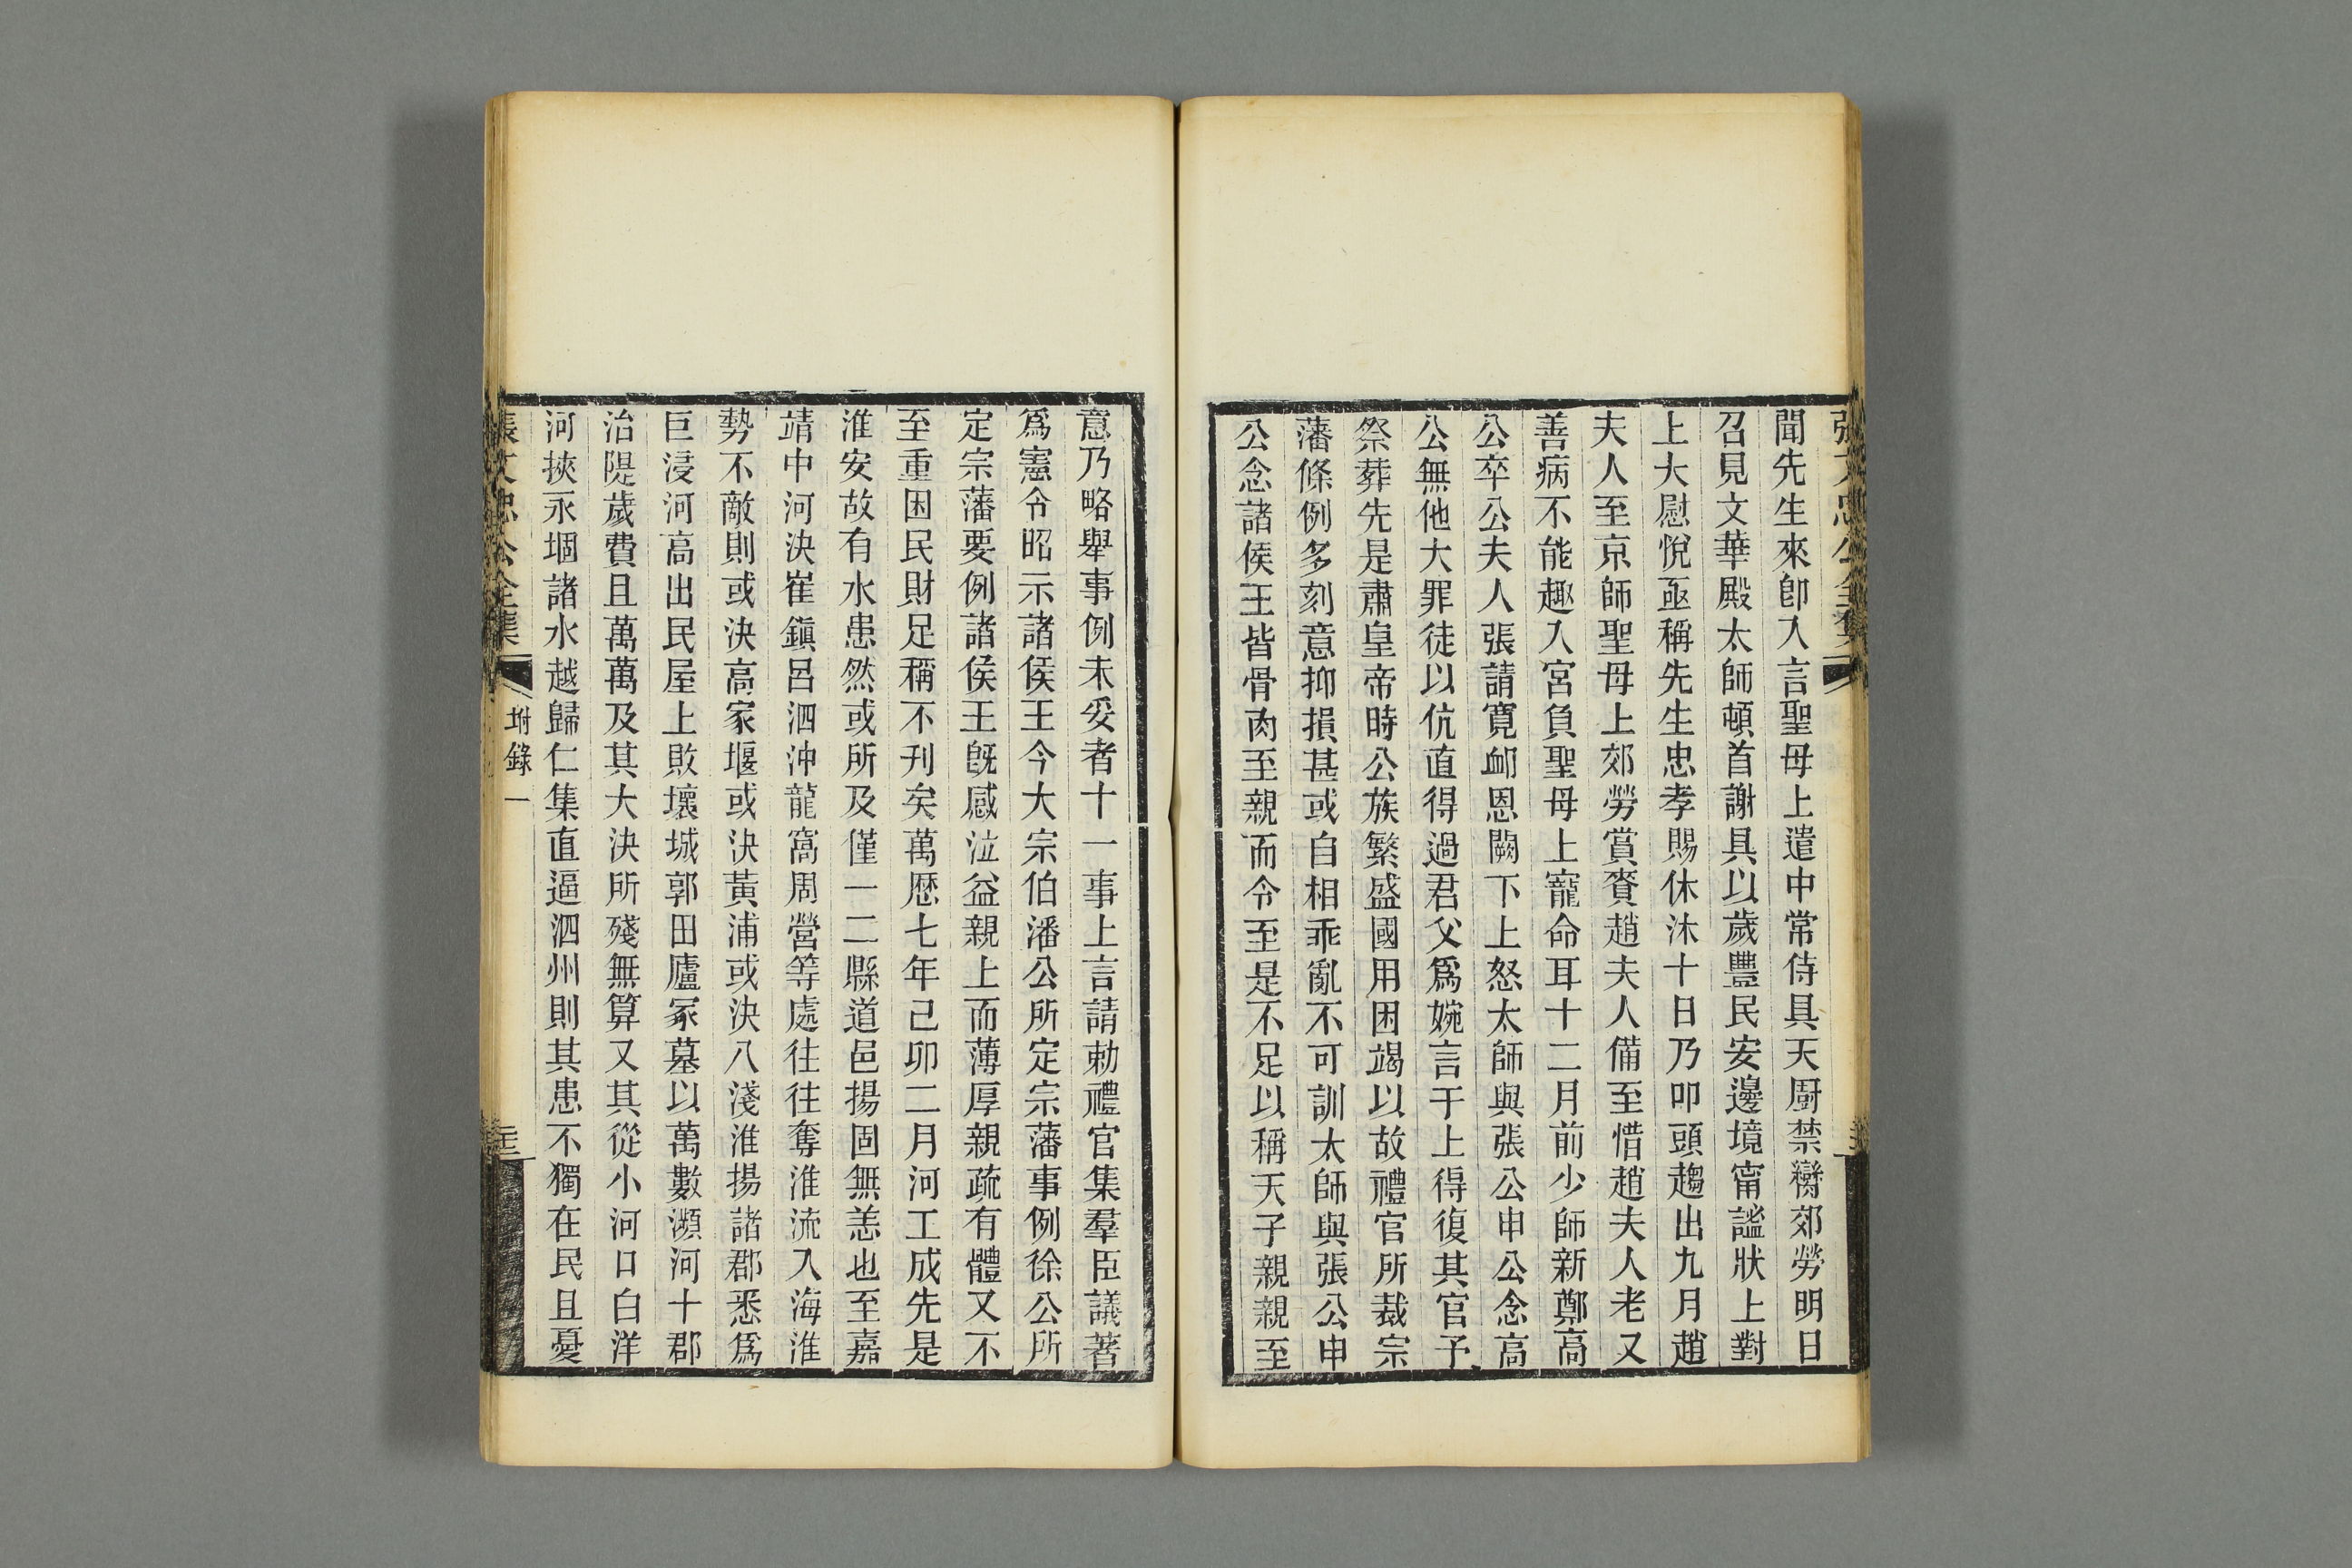 聞先生來卽入言聖母上遣中常侍具天厨禁臠郊勞明日
召見文華殿太師頓首謝具以歲豐民安邊境甯謐狀上對
上大慰悅亟稱先生忠孝賜休沐十日乃叩頭趨出九月趙
夫人至京師聖母上郊勞賞賚趙夫人備至惜趙夫人老又
善病不能趣入宮負聖母上寵命耳十二月前少師新鄭高
公卒公夫人張請寬卹恩闕下上怒太師與張公申公念高
公無他大罪徒以伉直得過君父爲婉言于上得復其官予
祭葬先是肅皇帝時公族繁盛國用困竭以故禮官所裁宗
藩條例多刻意抑損甚或自相乖亂不可訓太師與張公申
公念諸侯王皆骨肉至親而令至是不足以稱天子親親至
意乃略舉事例未妥者十一事上言請勅禮官集羣臣議著
爲憲令昭示諸侯王今大宗伯潘公所定宗藩事例徐公所
定宗藩要例諸侯王旣感泣益親上而薄厚親疏有體又不
至重困民財足稱不刊矣萬歷七年己卯二月河工成先是
淮安故有水患然或所及僅一二縣道邑揚固無恙也至嘉
靖中河決崔鎭呂泗沖龍窩周營等處往往奪淮流入海淮
勢不敵則或決高家堰或決黃浦或決八淺淮揚諸郡悉爲
巨浸河高出民屋上敗壞城郭田廬冢墓以萬數瀕河十郡
治隄歲費且萬萬及其大決所殘無算又其從小河口白洋
河挾永堌諸水越歸仁集直逼泗州則其患不獨在民且憂
張文忠公全集 坿錄一